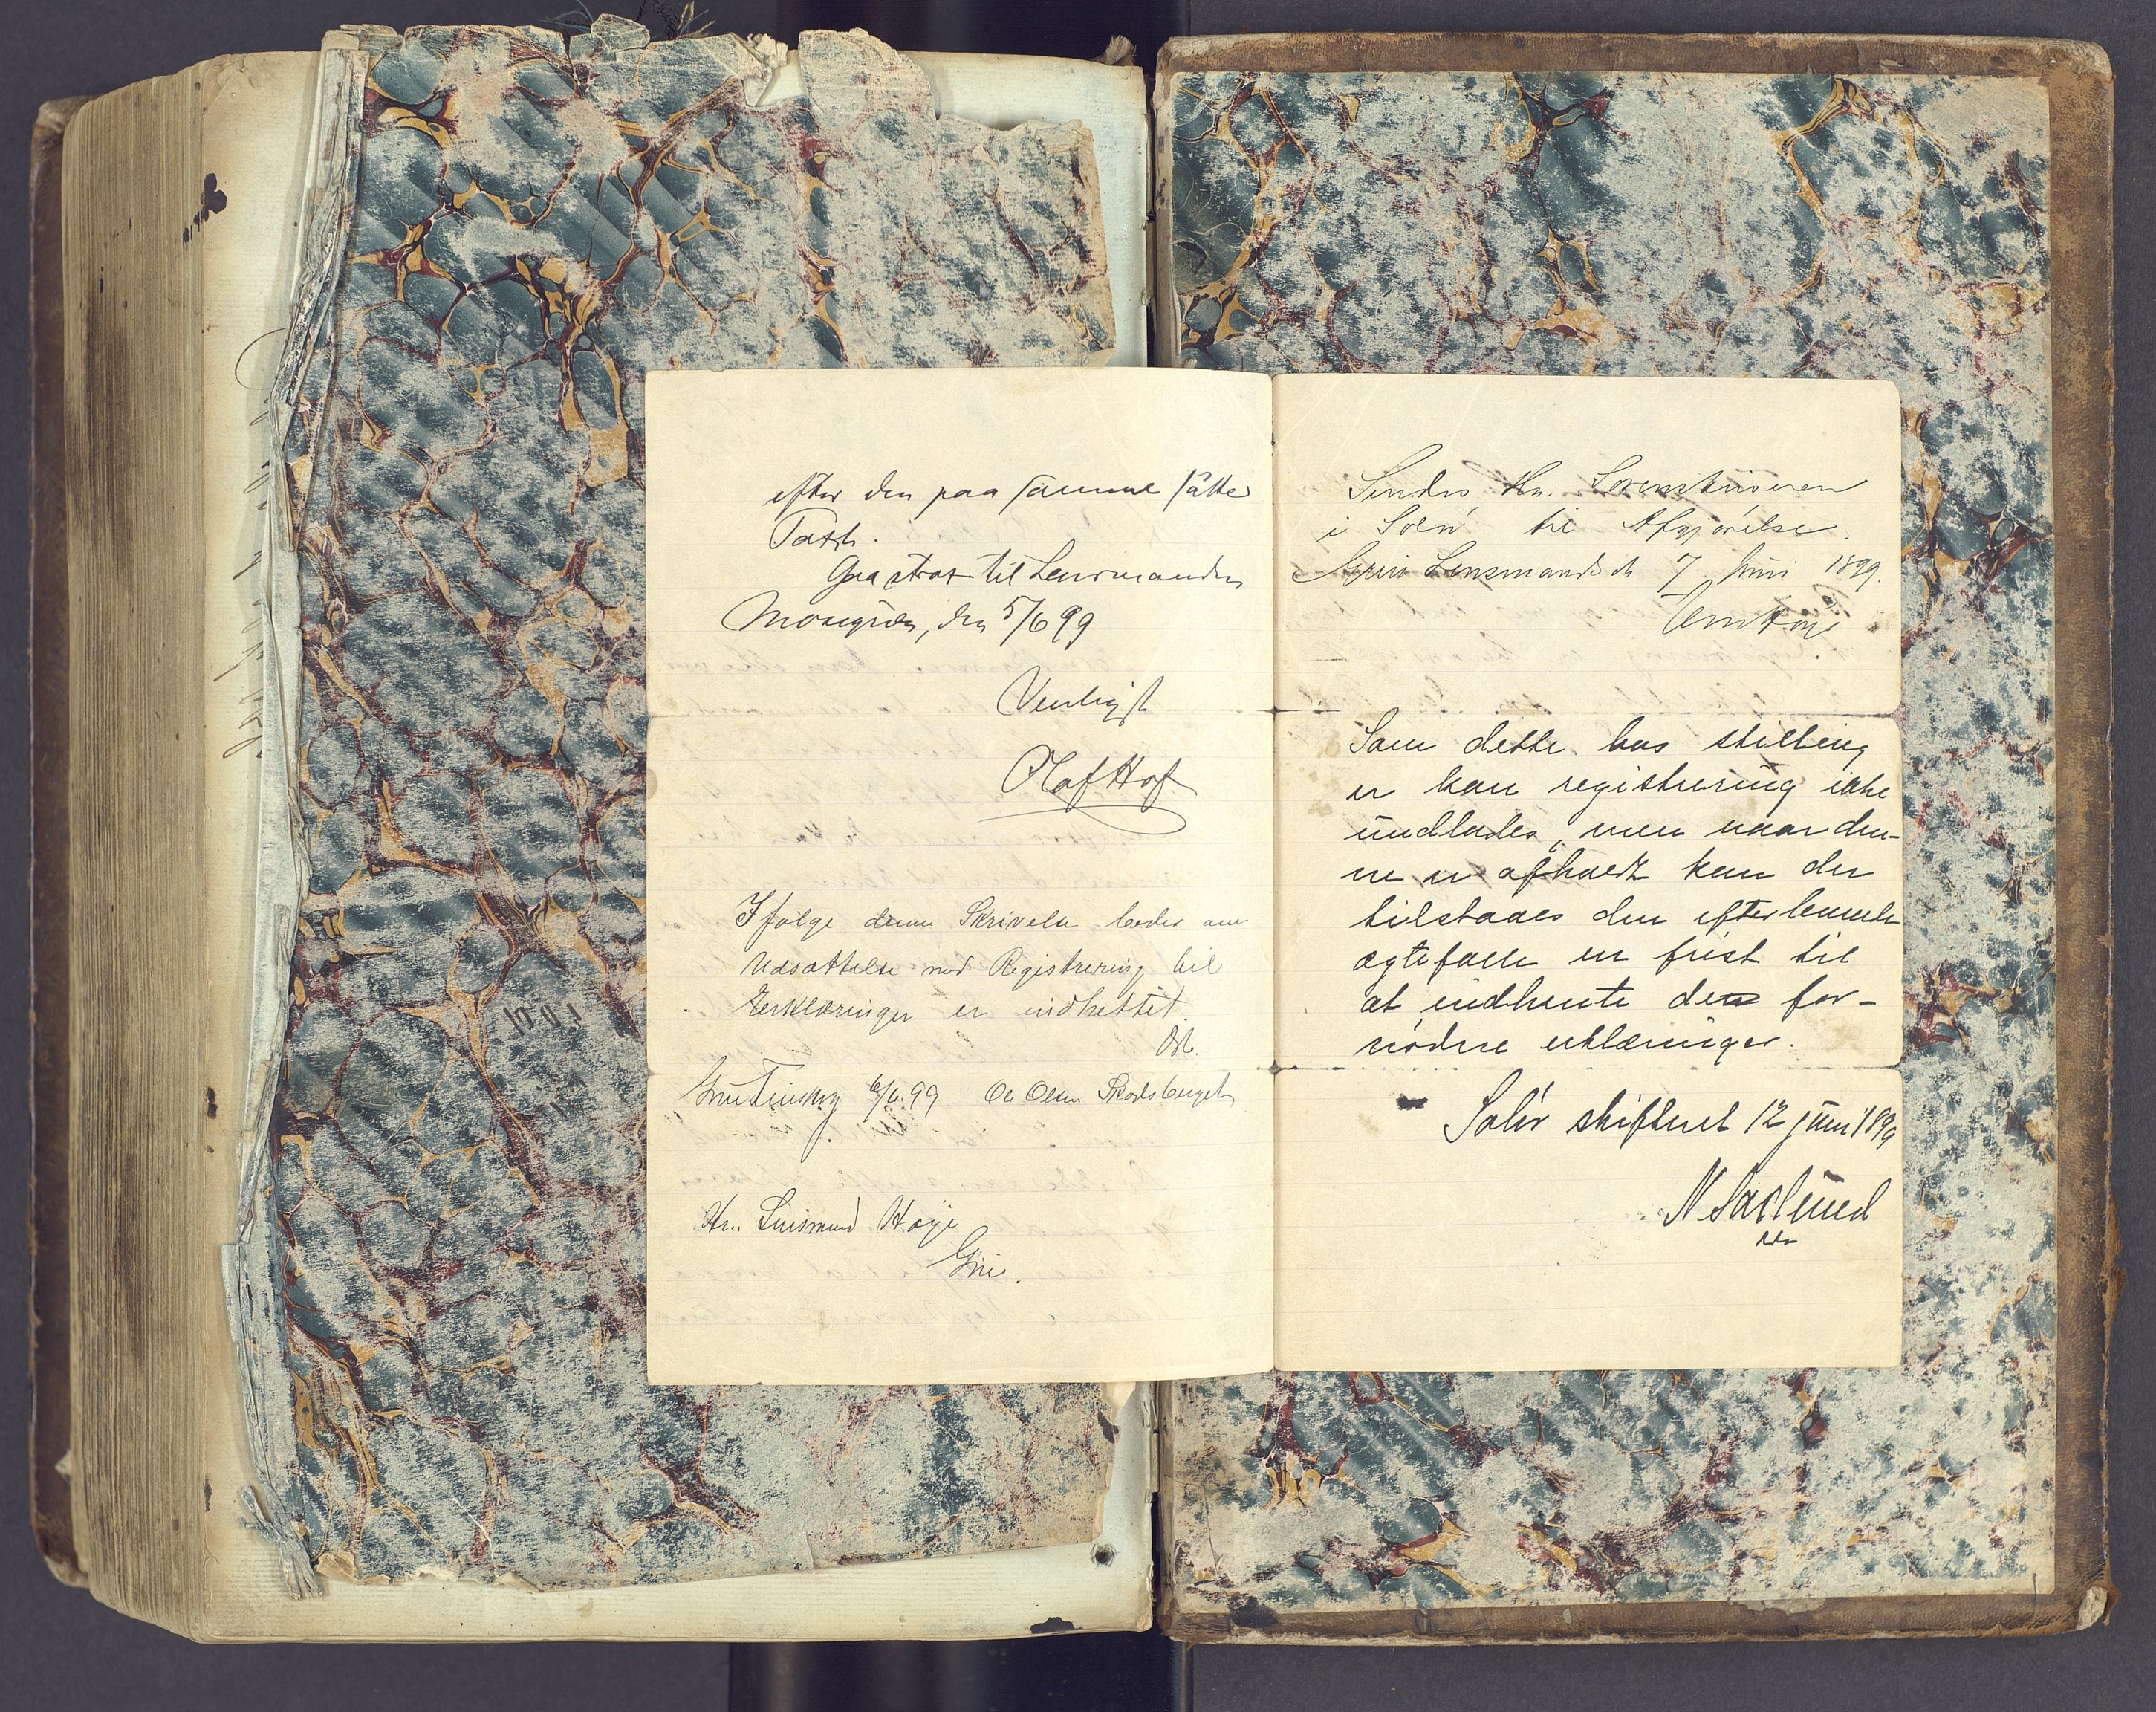 efter den paa samme satte
Taxt.
Gaa strax til Lensmanden
Mosogrden, den 5/6 99
Venligst
Olaf Hof
Ifølge denne Skrivelse bedes om
Udsættelse med Registrering til
Erklæringer er indhettet.
Grue Finskog 6/6 99 Ole Olsen Skodsberget
Hr. Lensmand Høye
Grue.
Sendes Hr. Sorenskriveren
i Solør til Afgjørelse.
Grue Lensmandsd. 7 Juni 1899.
Høye
Som dette bos stilling
er kan registrering ikke
undlades, men naar den-
ne er afholdt kan der
tilstaaes den efterlevende
ægtefælle en frist til
at indhente de for-
nødne erklæringer.
Solør skifteret 12 juni 1899
N. Saxlund